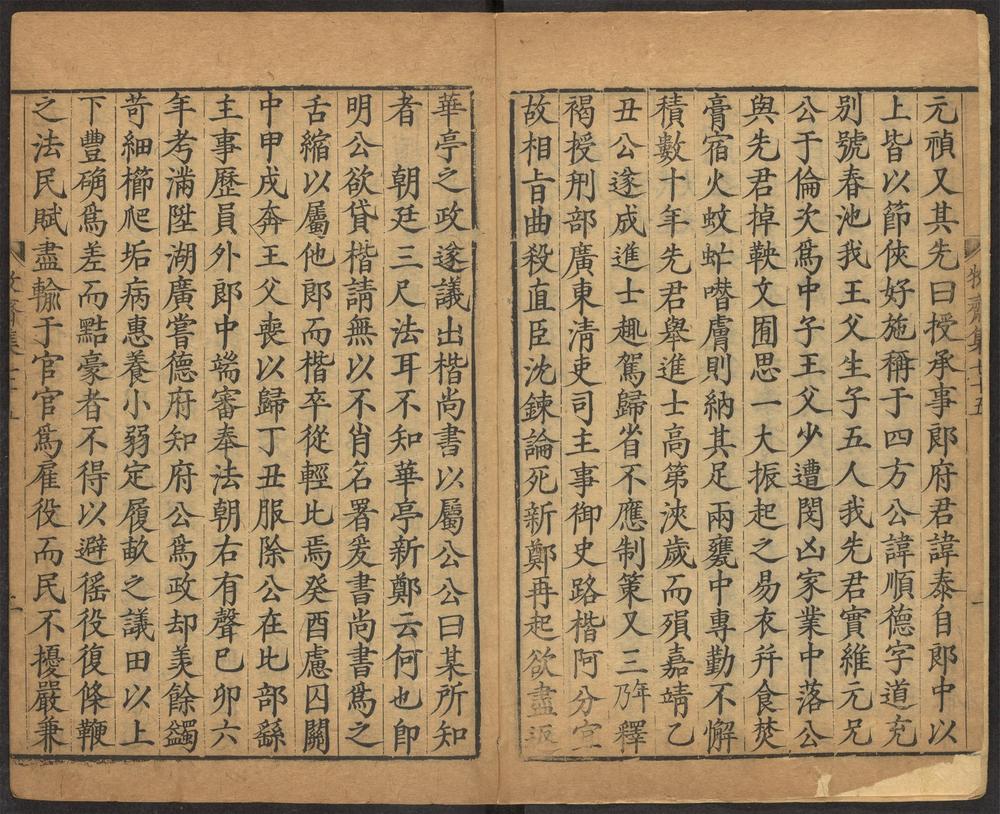 元禎又其先曰授承事郎府君諱泰自郎中以
上皆以節俠好施稱于四方公諱順德字道充
別號春池我王父生子五人我先君實維元兄
公于倫次爲中子王父少遭閔凶家業中落公
與先君掉鞅文囿思一大振起之易衣并食焚
膏宿火蚊虻噆膚則納其足兩甕中專勤不懈
積數十年先君舉進士高第浹歲而殞嘉靖乙
丑公遂成進士趣駕歸省不應制策又三年乃釋
褐授刑部廣東淸吏司主事御史路楷阿分宜
故相旨曲殺直臣沈鍊論死新鄭再起欲盡返
華亭之政遂議出楷尚書以屬公公曰某所知
者　朝廷三尺法耳不知華亭新鄭云何也即
明公欲貸楷請無以不肖名署爰書尚書爲之
舌縮以屬他郎而楷卒從輕比焉癸酉慮囚關
中甲戌奔王父喪以歸丁丑服除公在比部繇
主事歷員外郎中端審奉法朝右有聲己卯六
年考滿陞湖廣嘗德府知府公爲政却羡餘蠲
苛細櫛爬垢病惠養小弱定履畝之議田以上
下豐确爲差而黠豪者不得以避徭役復條鞭
之法民賦盡輸于官官爲雇役而民不擾嚴兼